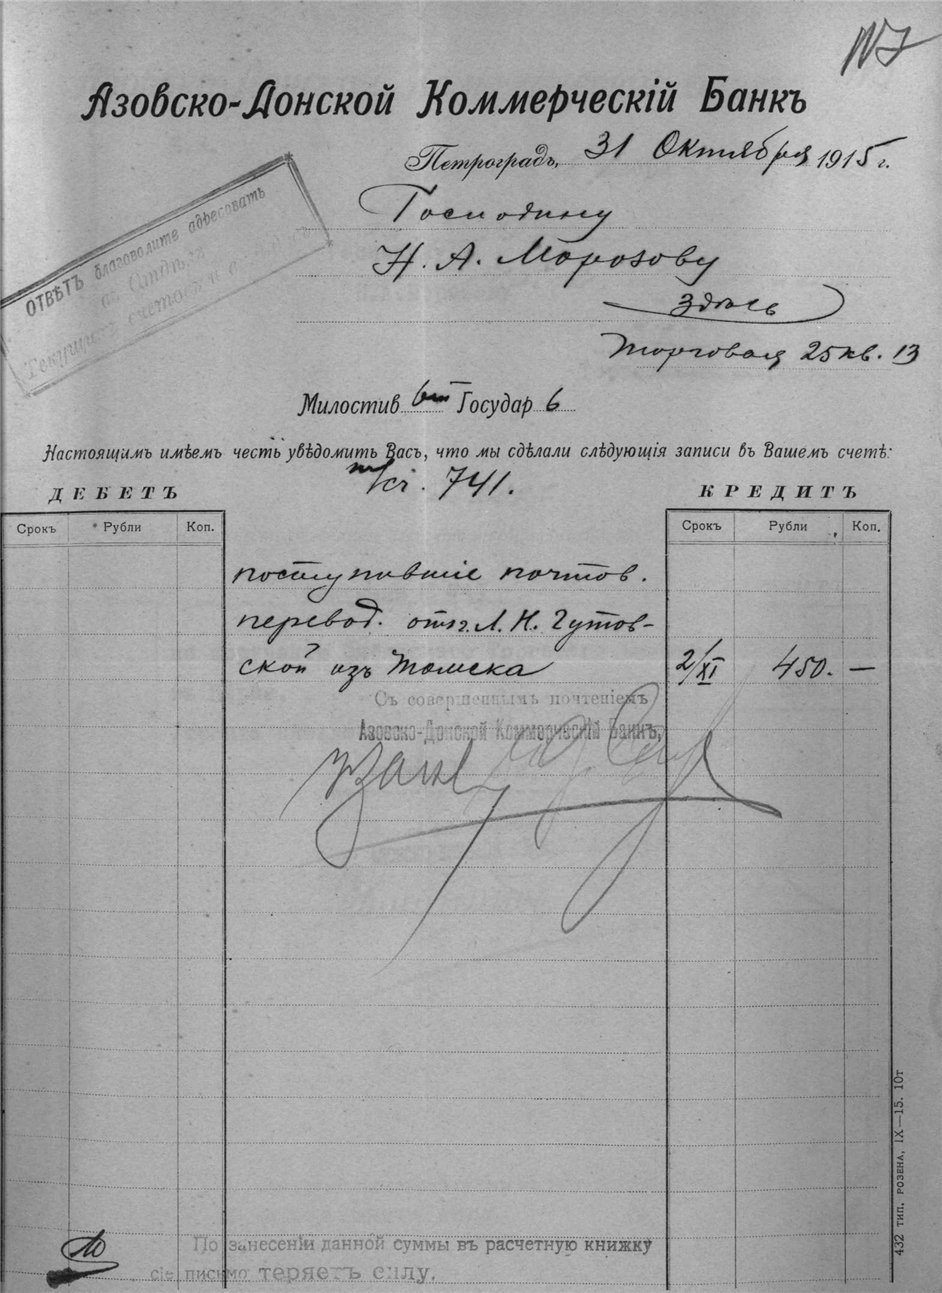 Азовско-Донской Коммерческій Банкъ
Петроградъ, 31 Октября 1915 г.
ОТВѢТЪ благоволите адресовать
въ Отдѣлъ
Текущихъ счетовъ и
Господину
Н. А. Морозову
здѣсь
Торговая 25 кв. 13
Милостивый Государь
Настоящимъ имѣемъ честь увѣдомить Васъ, что мы сдѣлали слѣдующія записи въ Вашемъ счетѣ:
741.
ДЕБЕТЪ КРЕДИТЪ
Срокъ Рубли Коп. Срокъ Рубли Коп.
поступившіе почтов.
перевод. отъ г. Л. Н. Гутов-
ской изъ Томска 2/XI 450. —
Съ совершеннымъ почтеніемъ
Азовско-Донской Коммерческій Банкъ,
По занесеніи данной суммы въ расчетную книжку
сіе письмо теряетъ силу.
432 тип. РОЗЕНА, IX—15. 10т